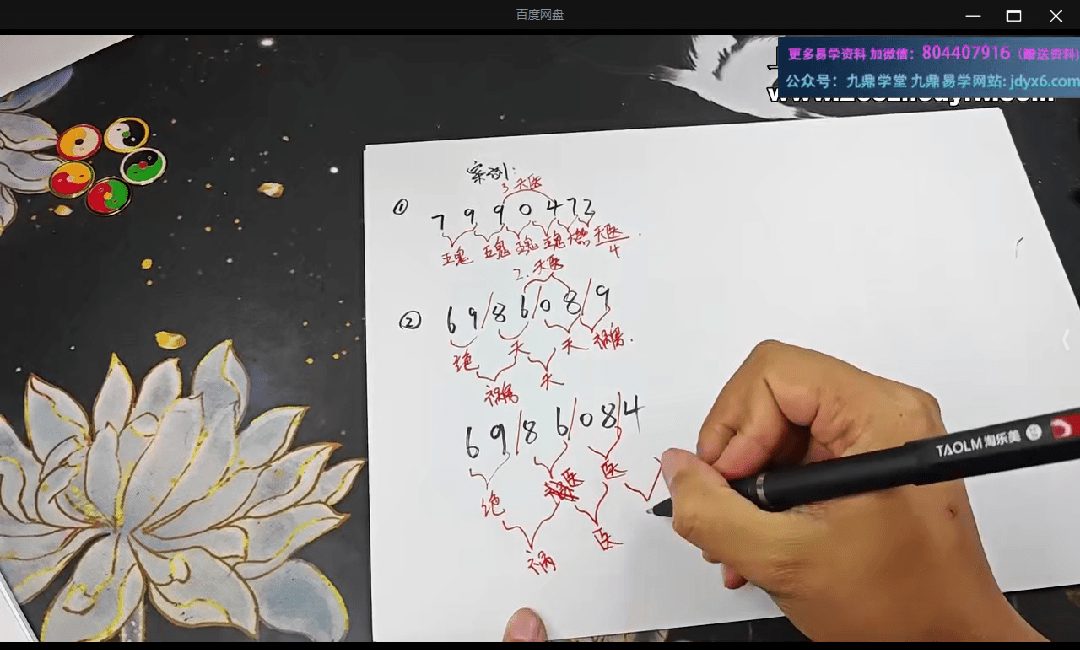 百度网盘
更多易学资料 加微信：804407916（赠送资料）
公众号：九鼎学堂 九鼎易学网站：jdyx6.com
案例：
3.天医
① 7 9 9 0 4 7 2
五鬼 五鬼 五鬼 五鬼 天医
4
2.天医
② 6 9/8 6/0 8/9
绝 天 天 祸害.
祸害 天
6 9/8 6/0 8/4
绝 医 医
祸 医
TAOLM 淘乐美